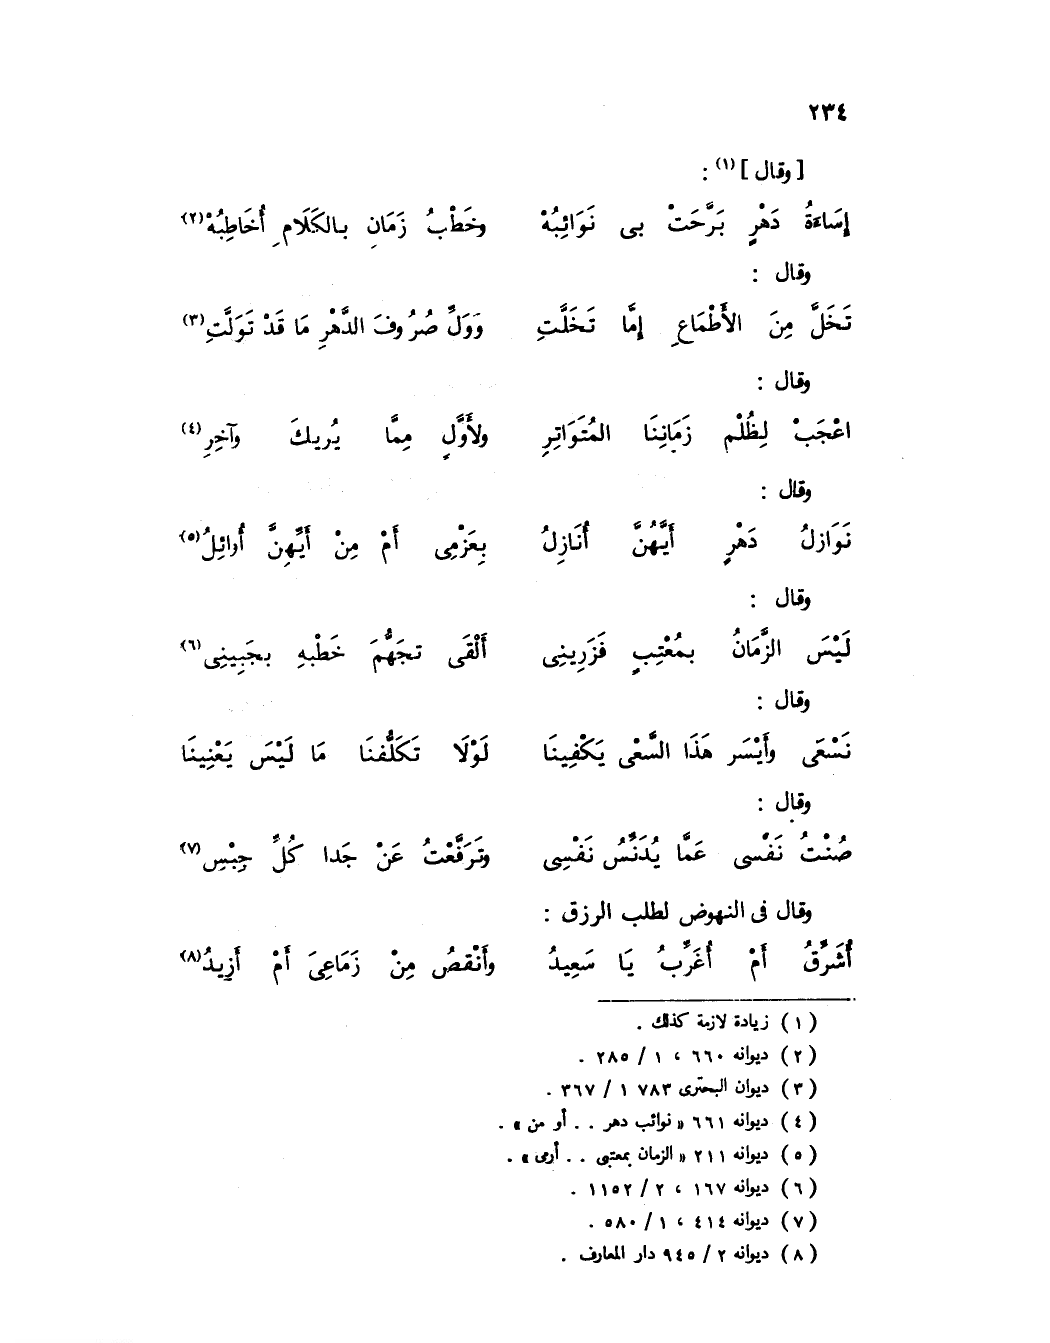 ٢٣٤
[ وقال ] (١) :
إِسَاءَةُ دَهْرٍ بَرَّحَتْ بى نَوَائِبُهْ وخَطْبُ زَمَانٍ بالكَلَامِ أُخَاطِبُهْ (٢)
وقال :
تَخَلَّ مِنَ الأَطْمَاعِ إِمَّا تَخَلَّتِ وَوَلِّ صُرُوفَ الدَّهْرِ مَا قَدْ تَوَلَّتِ (٣)
وقال :
اعْجَبْ لِظُلْمِ زَمَانِنَا المُتَوَاتِرِ ولأَوَّلٍ مِمَّا يُرِيكَ وآخِرِ (٤)
وقال :
نَوَازلُ دَهْرٍ أَيَّهُنَّ أُنَازِلُ بِعَزْمِى أَمْ مِنْ أَيِّهِنَّ أُوائِلُ (٥)
وقال :
لَيْسَ الزَّمَانُ بمُعْتِبٍ فَزَرِينِى أَلْقَى تجَهُّمَ خَطْبهِ بجَبِينِى (٦)
وقال :
نَسْعَى وأَيْسَر هَذَا السَّعْى يَكْفِينَا لَوْلَا تَكَلُّفنَا مَا لَيْسَ يَعْنِينَا
وقال :
صُنْتُ نَفْسى عَمَّا يُدَنِّسُ نَفْسِى وتَرَفَّعْتُ عَنْ جَدا كُلِّ جِبْسِ (٧)
وقال فى النهوض لطلب الرزق :
أُشَرِّقُ أَمْ أُغَرِّبُ يَا سَعِيدُ وأَنْقصُ مِنْ زَمَاعِىَ أَمْ أَزِيدُ (٨)
( ١ ) زيادة لازمة كذلك .
( ٢ ) ديوانه ٦٦٠ ، ١ / ٢٨٥ .
( ٣ ) ديوان البحترى ٧٨٣ ١ / ٣٦٧ .
( ٤ ) ديوانه ٦٦١ « نوائب دهر . . أو من » .
( ٥ ) ديوانه ٢١١ « الزمان بمعتبى . . أرمى » .
( ٦ ) ديوانه ١٦٧ ، ٢ / ١١٥٢ .
( ٧ ) ديوانه ٤١٤ ، ١ / ٥٨٠ .
( ٨ ) ديوانه ٢ / ٩٤٥ دار المعارف .